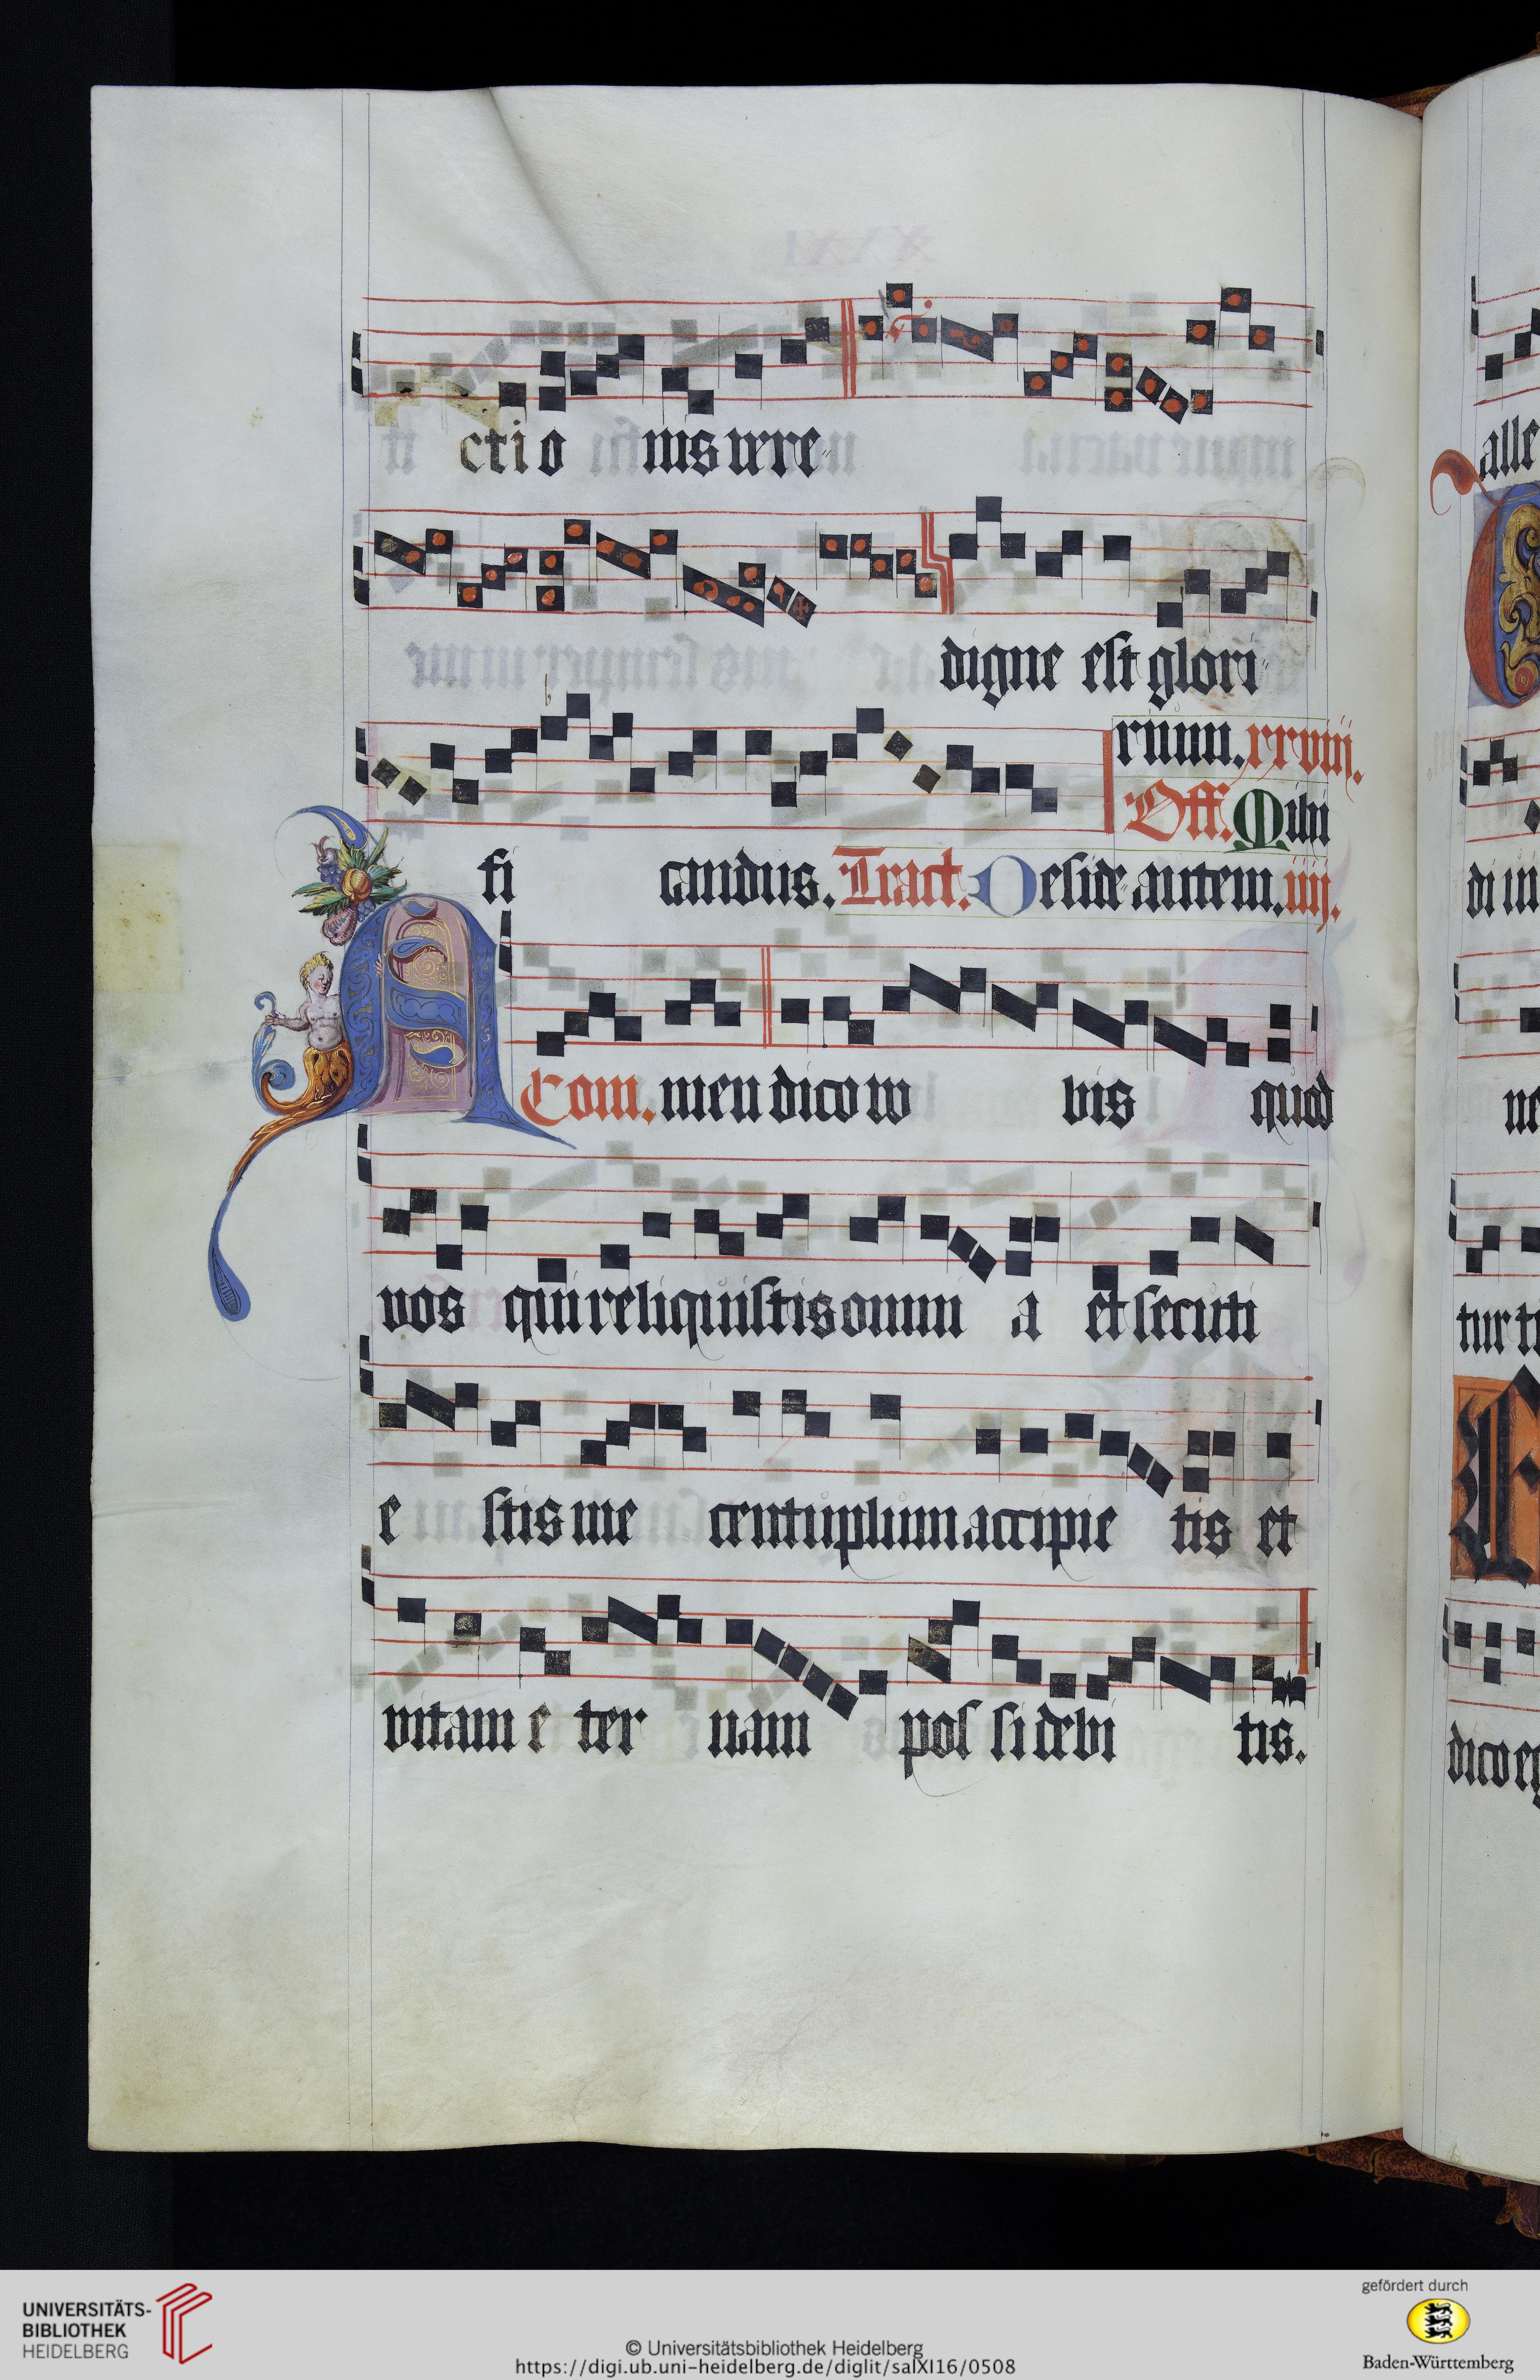 ctio nis vere-
digne est glori-
rium. xxviij.
Off. Mihi
fi candus. Tract. Deside- autem. iiij.
A
Com. men dico vo bis quod
vos qui reliquistis omni a et secuti
e stis me centuplum accipie tis et
vitam e ter nam pos si debi tis.
alle
di in
ne
tur tu
dico eg
UNIVERSITÄTS-
BIBLIOTHEK
HEIDELBERG
© Universitätsbibliothek Heidelberg
https://digi.ub.uni-heidelberg.de/diglit/salXI16/0508
gefördert durch
Baden-Württemberg